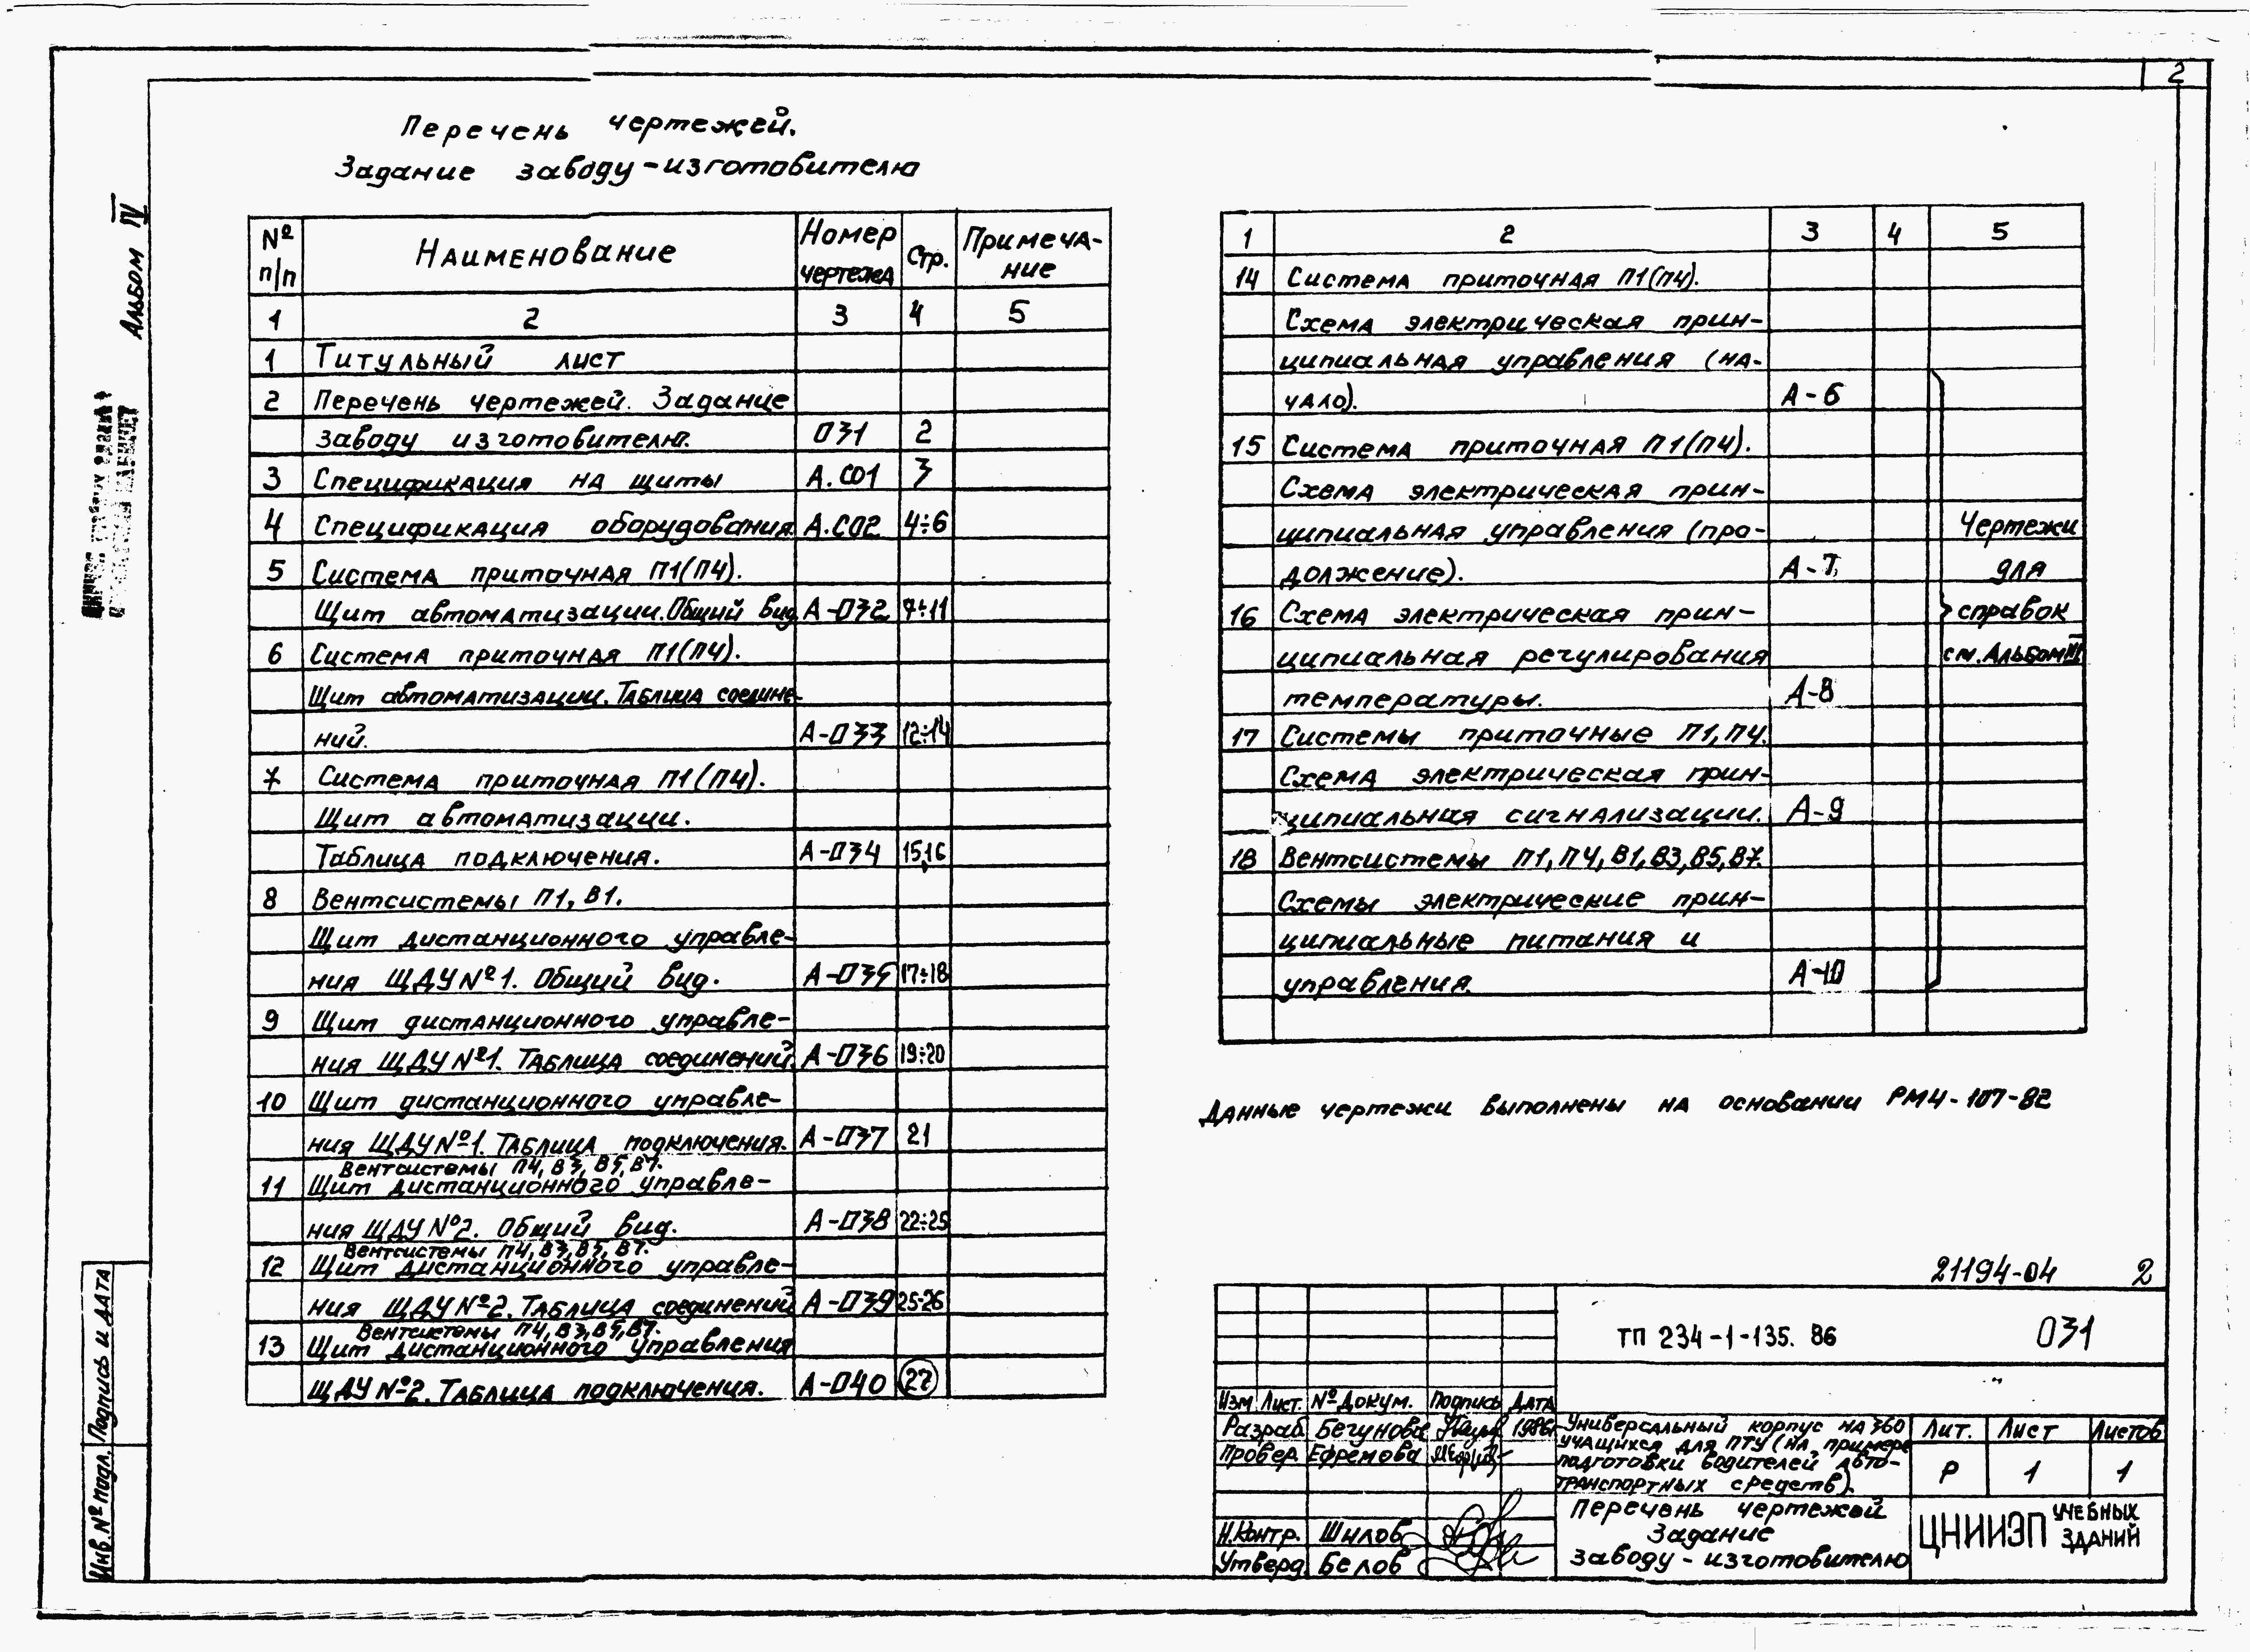 2
Перечень чертежей.
Задание заводу-изготовителю
Альбом IV
№ п/п Наименование Номер чертежа Стр. Примечание
1 2 3 4 5
1 Титульный лист
2 Перечень чертежей. Задание
заводу изготовителю. 031 2
3 Спецификация на щиты А.СО1 3
4 Спецификация оборудования. А.СО2 4÷6
5 Система приточная П1(П4).
Щит автоматизации. Общий вид А-032 7÷11
6 Система приточная П1(П4).
Щит автоматизации. Таблица соедине-
ний. А-033 12÷14
7 Система приточная П1(П4).
Щит автоматизации.
Таблица подключения. А-034 15,16
8 Вентсистемы П1, В1.
Щит дистанционного управле-
ния ЩДУ №1. Общий вид. А-035 17÷18
9 Щит дистанционного управле-
ния ЩДУ №1. Таблица соединений. А-036 19÷20
10 Щит дистанционного управле-
ния ЩДУ №1. Таблица подключения. А-037 21
Вентсистемы П4, В3, В5, В7.
11 Щит дистанционного управле-
ния ЩДУ №2. Общий вид. А-038 22÷25
Вентсистемы П4, В3, В5, В7.
12 Щит дистанционного управле-
ния ЩДУ №2. Таблица соединений А-039 25÷26
Вентсистемы П4, В3, В5, В7.
13 Щит дистанционного управления
ЩДУ №2. Таблица подключения. А-040 27
1 2 3 4 5
14 Система приточная П1(П4).
Схема электрическая прин-
ципиальная управления (на-
чало). А-6
15 Система приточная П1(П4).
Схема электрическая прин-
ципиальная управления (про-
должение). А-7
16 Схема электрическая прин-
ципиальная регулирования
температуры. А-8
17 Системы приточные П1, П4.
Схема электрическая прин-
ципиальная сигнализации. А-9
18 Вентсистемы П1, П4, В1, В3, В5, В7.
Схемы электрические прин-
ципиальные питания и
управления. А-10
Чертежи
для
справок
см. Альбом III
Данные чертежи выполнены на основании РМ4-107-82
21194-04 2
ТП 234-1-135. 86 031
Изм Лист. № докум. Подпись Дата
Разраб. Бегунова 1986г.
Провер. Ефремова
Н.Контр. Шилов
Утверд. Белов
Универсальный корпус на 360
учащихся для ПТУ (на примере
подготовки водителей авто-
транспортных средств).
Лит. Лист Листов
Р 1 1
Перечень чертежей
Задание
заводу-изготовителю
ЦНИИЭП УЧЕБНЫХ ЗДАНИЙ
Инв. № подл. Подпись и дата